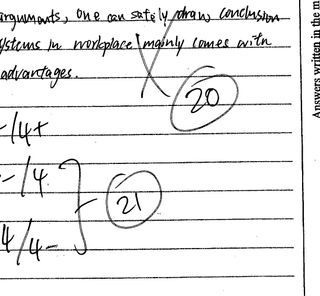 arguments, one can safely draw conclusion
systems in workplace mainly comes with
advantages.
20
-/4+
-/4
21
4/4-
Answers written in the m